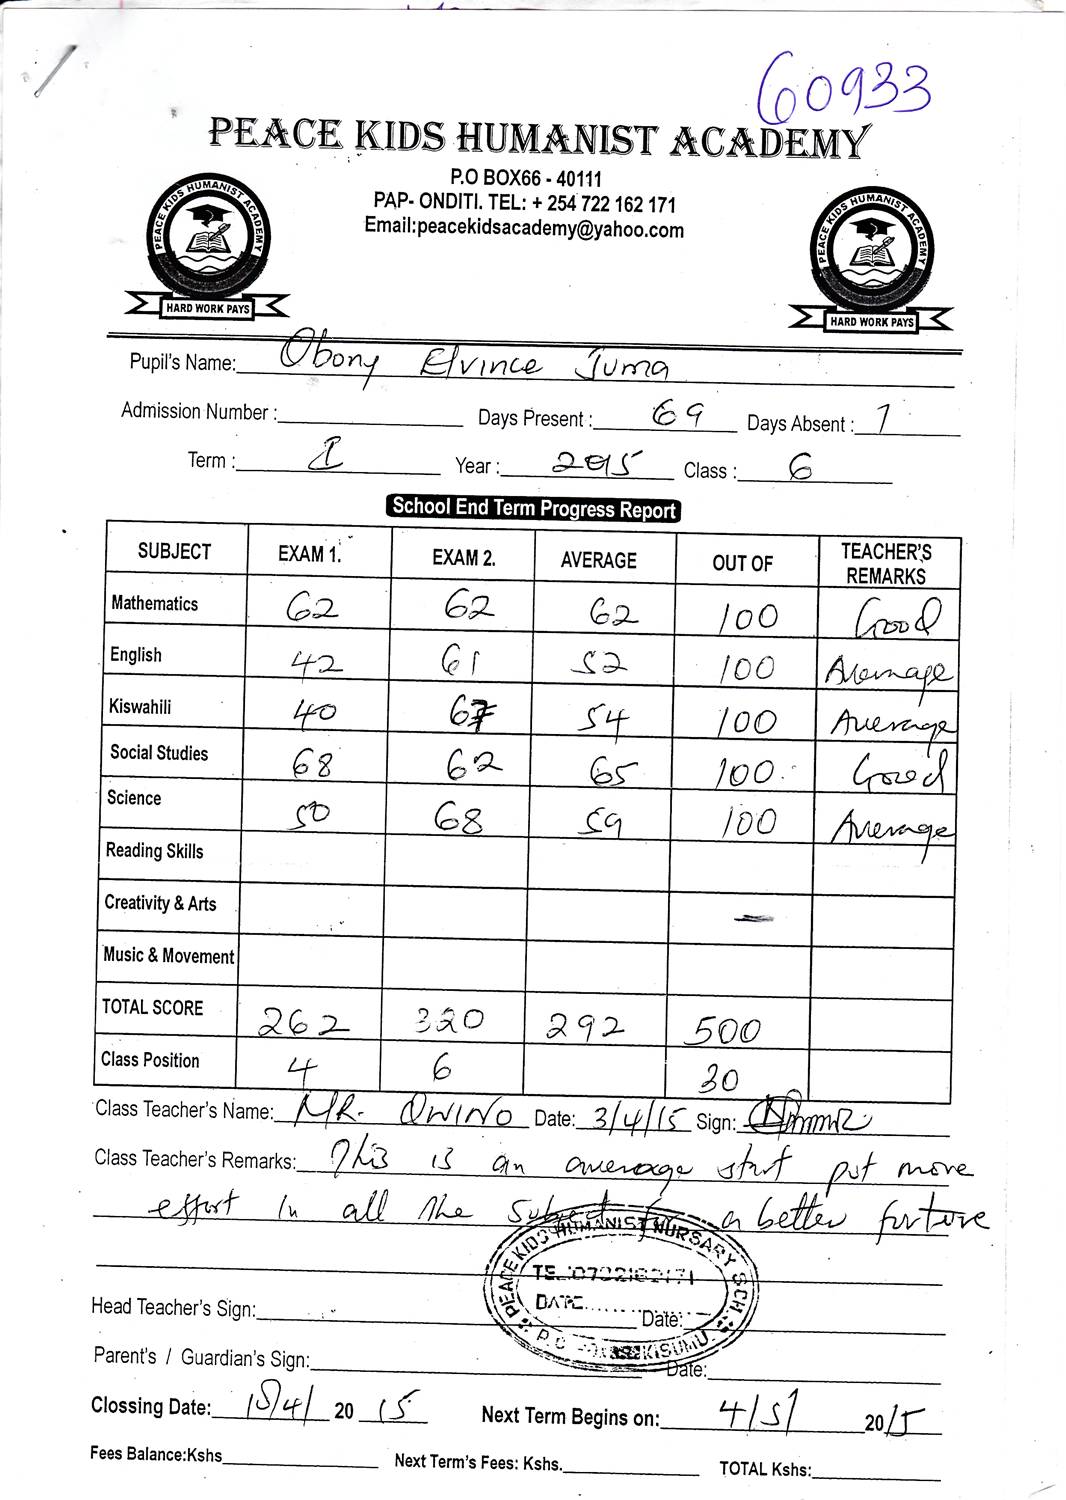 60933
PEACE KIDS HUMANIST ACADEMY
P.O BOX66 - 40111
PAP- ONDITI. TEL: + 254 722 162 171
Email:peacekidsacademy@yahoo.com
PEACE KIDS HUMANIST ACADEMY
HARD WORK PAYS
PEACE KIDS HUMANIST ACADEMY
HARD WORK PAYS
Pupil's Name: Obony Elvince Juma
Admission Number : Days Present : 69 Days Absent : 1
Term : I Year : 2015 Class : 6
School End Term Progress Report
SUBJECT EXAM 1. EXAM 2. AVERAGE OUT OF TEACHER'S REMARKS
Mathematics 62 62 62 100 Good
English 42 61 52 100 Average
Kiswahili 40 67 54 100 Average
Social Studies 68 62 65 100 Good
Science 50 68 59 100 Average
Reading Skills
Creativity & Arts
Music & Movement
TOTAL SCORE 262 320 292 500
Class Position 4 6 30
Class Teacher's Name: MR. OWINO Date: 3/4/15 Sign:
Class Teacher's Remarks: This is an average start put more
effort in all the subject for a better forture
PEACE KIDS HUMANIST NURSARY SCH.
TEL 0722162171
DATE
P.O KISUMU
Head Teacher's Sign: Date:
Parent's / Guardian's Sign: Date:
Clossing Date: 20 15 Next Term Begins on: 4/5/ 2015
Fees Balance:Kshs Next Term's Fees: Kshs. TOTAL Kshs: